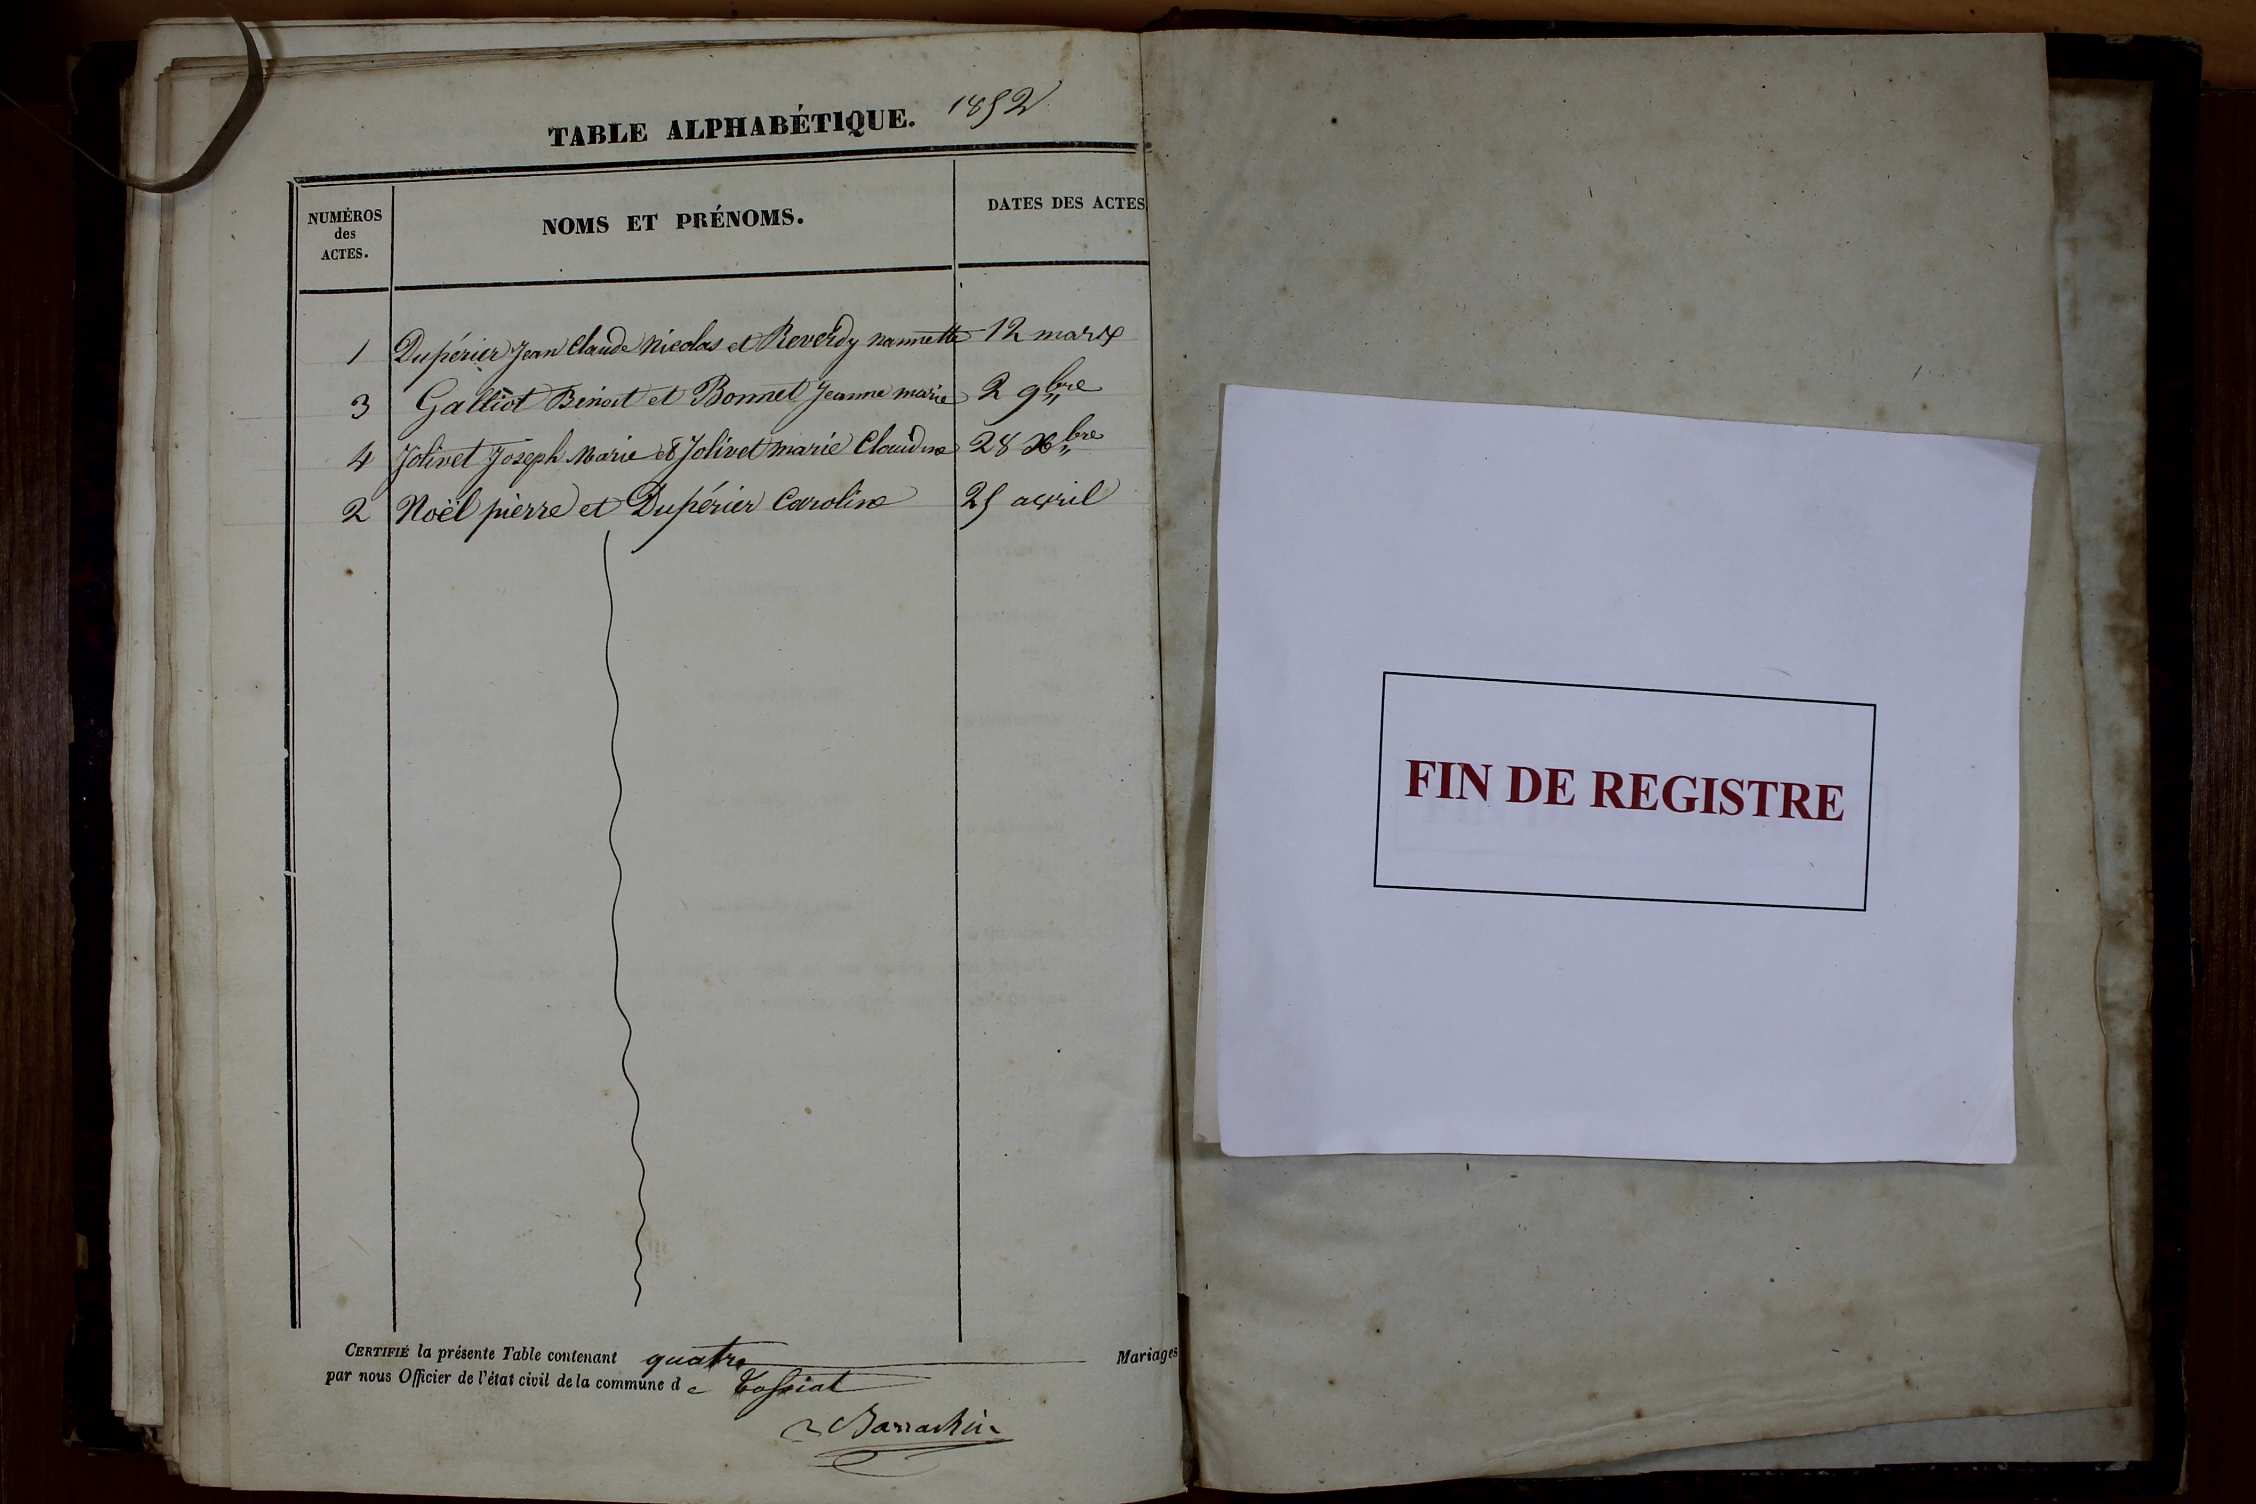 TABLE ALPHABÉTIQUE. 1852
NUMÉROS
des
ACTES.
NOMS ET PRÉNOMS.
DATES DES ACTES
1 Dupérier Jean Claude Nicolas et Reverdy nannette 12 mars
3 Galliot Benoit et Bonnet Jeanne marie 2 9bre
4 Jolivet Joseph Marie & Jolivet marie Claudine 28 Xbre
2 Noël pierre et Dupérier Caroline 25 avril
CERTIFIÉ la présente Table contenant quatre Mariages
par nous Officier de l'état civil de la commune de Tossiat
FIN DE REGISTRE